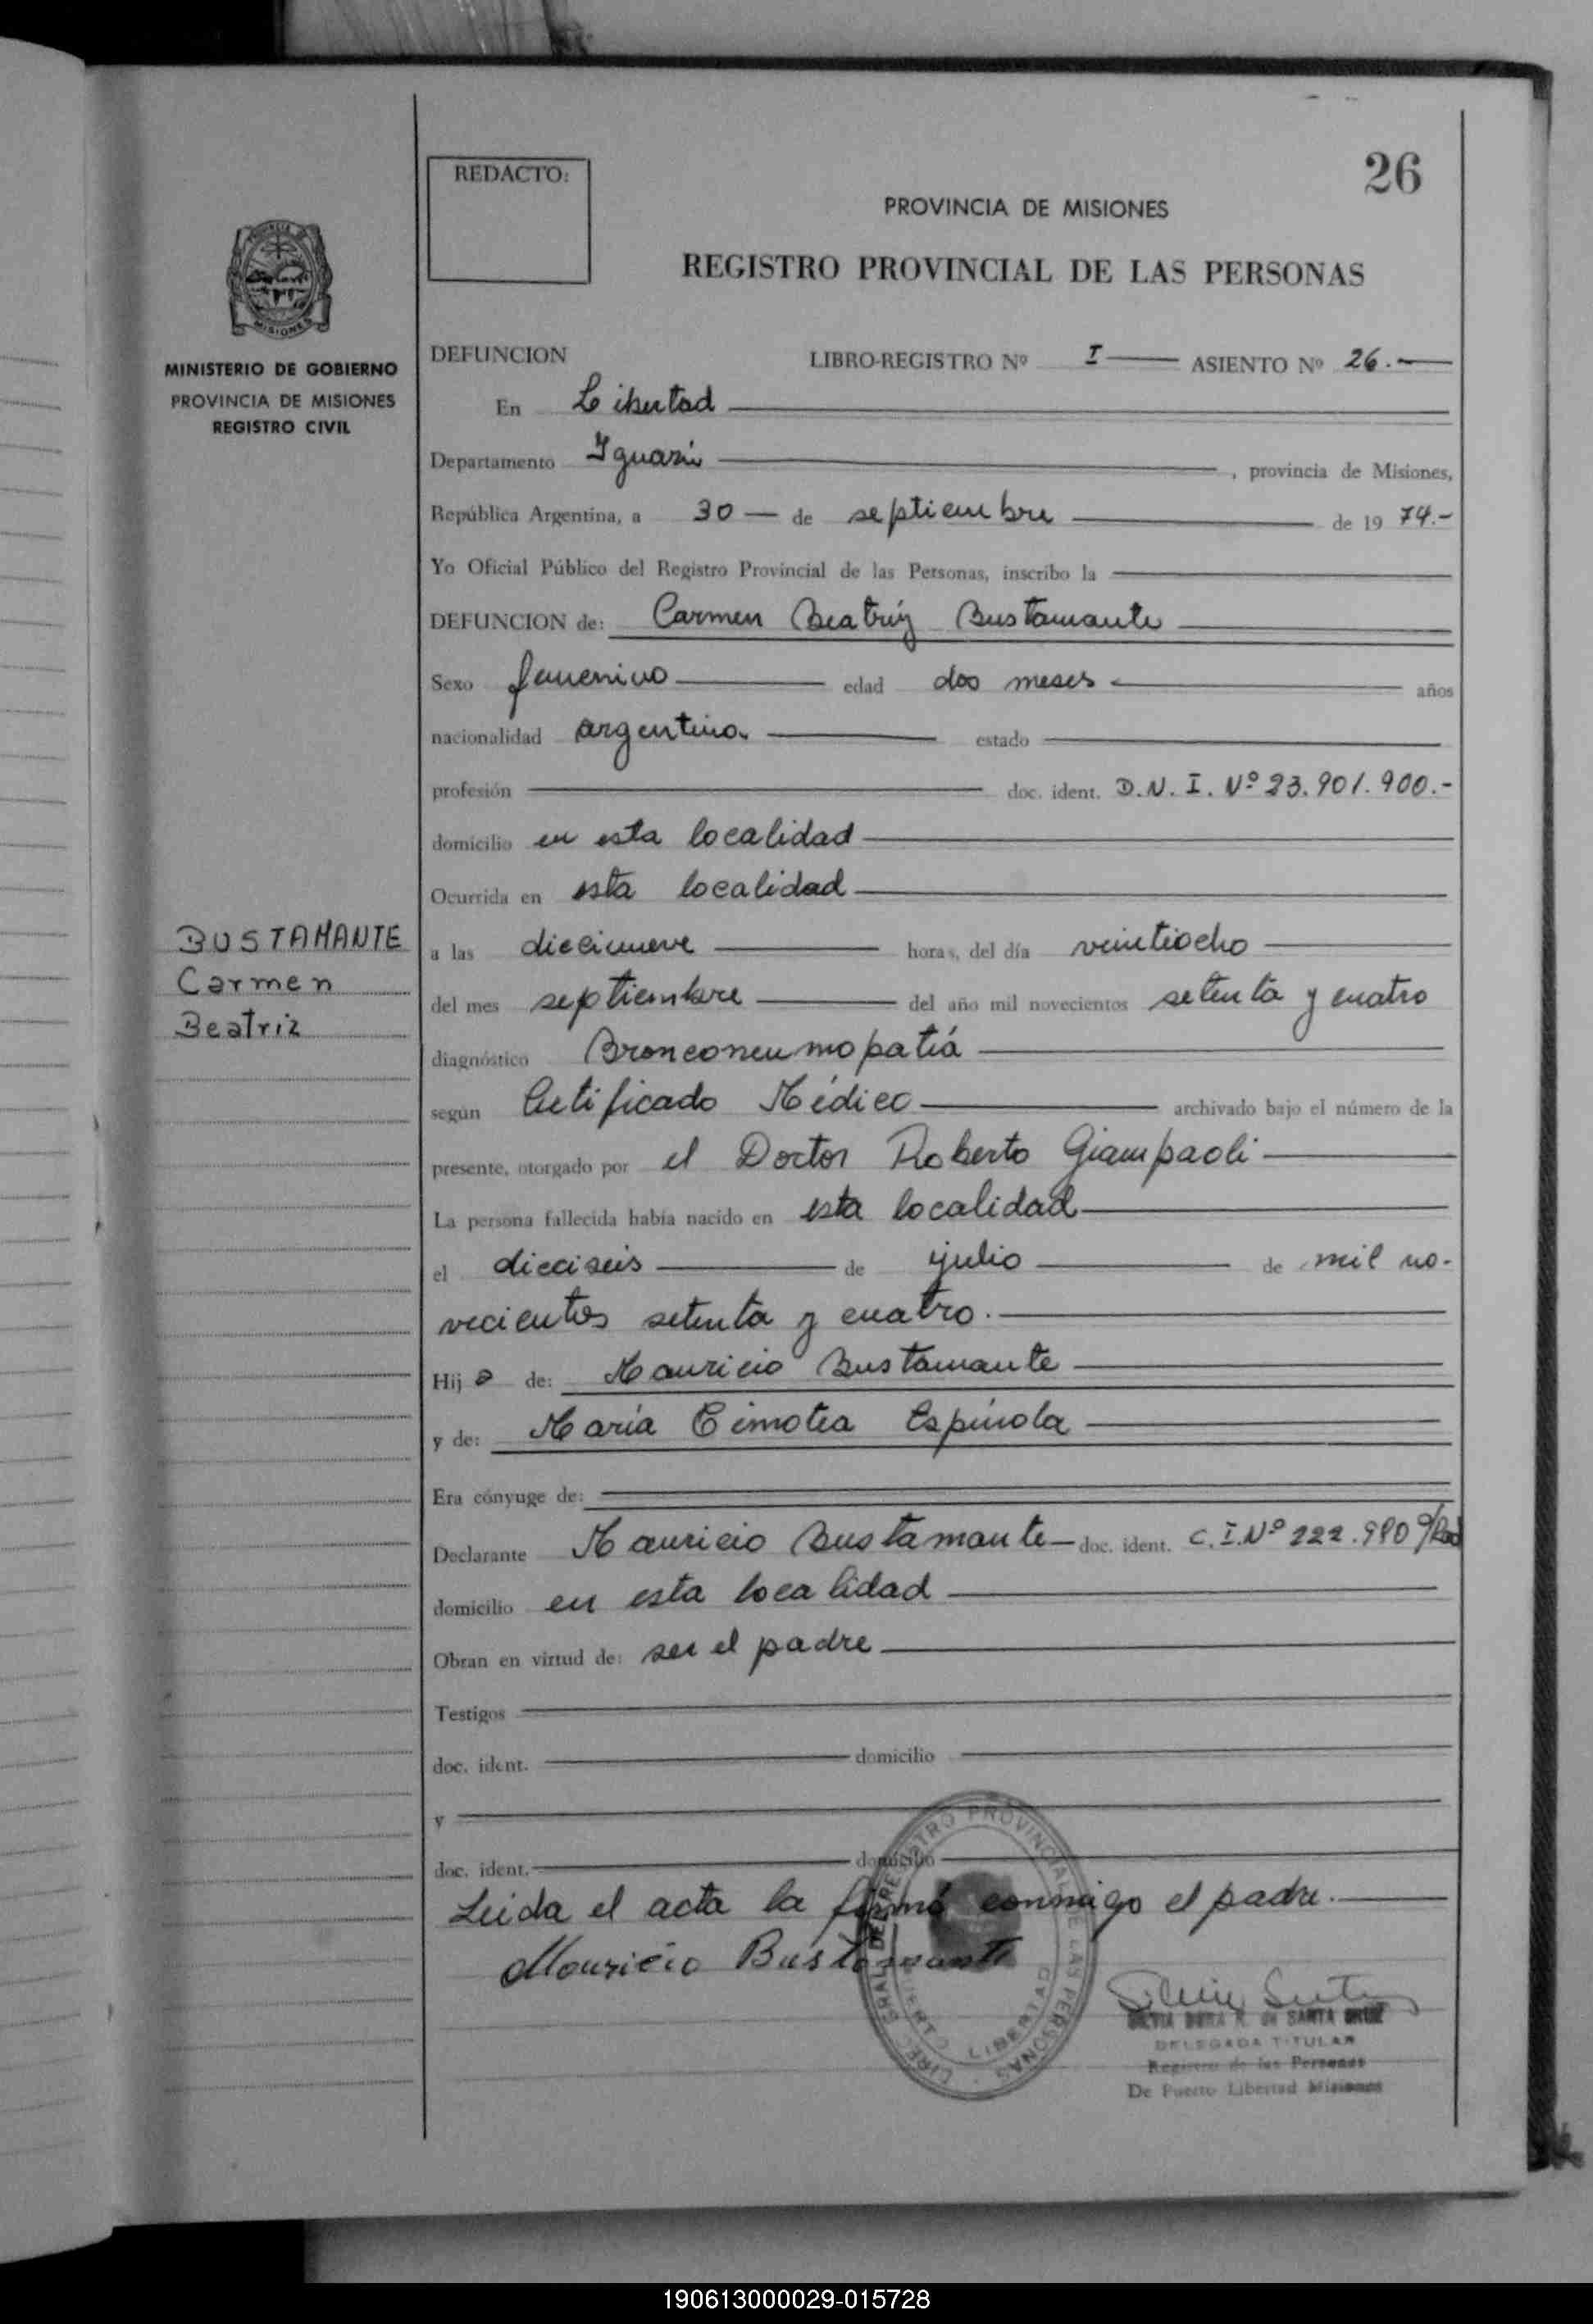 26
REDACTO:
PROVINCIA DE MISIONES
REGISTRO PROVINCIAL DE LAS PERSONAS
MISIONES
MINISTERIO DE GOBIERNO
PROVINCIA DE MISIONES
REGISTRO CIVIL
DEFUNCION LIBRO-REGISTRO Nº I ASIENTO Nº 26.-
En Libertad
Departamento Iguazú , provincia de Misiones,
República Argentina, a 30 de septiembre de 19 74.-
Yo Oficial Público del Registro Provincial de las Personas, inscribo la
DEFUNCION de: Carmen Beatríz Bustamante
Sexo femenino edad dos meses años
nacionalidad argentina estado
profesión doc. ident. D.N.I. Nº 23.901.900.-
domicilio en esta localidad
Ocurrida en esta localidad
BUSTAMANTE
Carmen
Beatriz
a las diecinueve horas, del día veintiocho
del mes septiembre del año mil novecientos setenta y cuatro
diagnóstico Bronconeumopatiá
según Certificado Médico archivado bajo el número de la
presente, otorgado por el Doctor Roberto Giampaoli
La persona fallecida había nacido en esta localidad
el dieciseis de julio de mil no-
vecientos setenta y cuatro.
Hij a de: Mauricio Bustamante
y de: María Timotea Espínola
Era cónyuge de:
Declarante Mauricio Bustamante doc. ident. C.I.Nº 222.980
domicilio en esta localidad
Obran en virtud de: ser el padre
Testigos
doc. ident. domicilio
y
doc. ident. domicilio
Leida el acta la firmó conmigo el padre.
Mauricio Bustamante
REGISTRO PROVINCIAL DE LAS PERSONAS
LIBERTAD
SILVIA DORA R. de SANTA CRUZ
DELEGADA TITULAR
Registro de las Personas
De Puerto Libertad Misiones
190613000029-015728